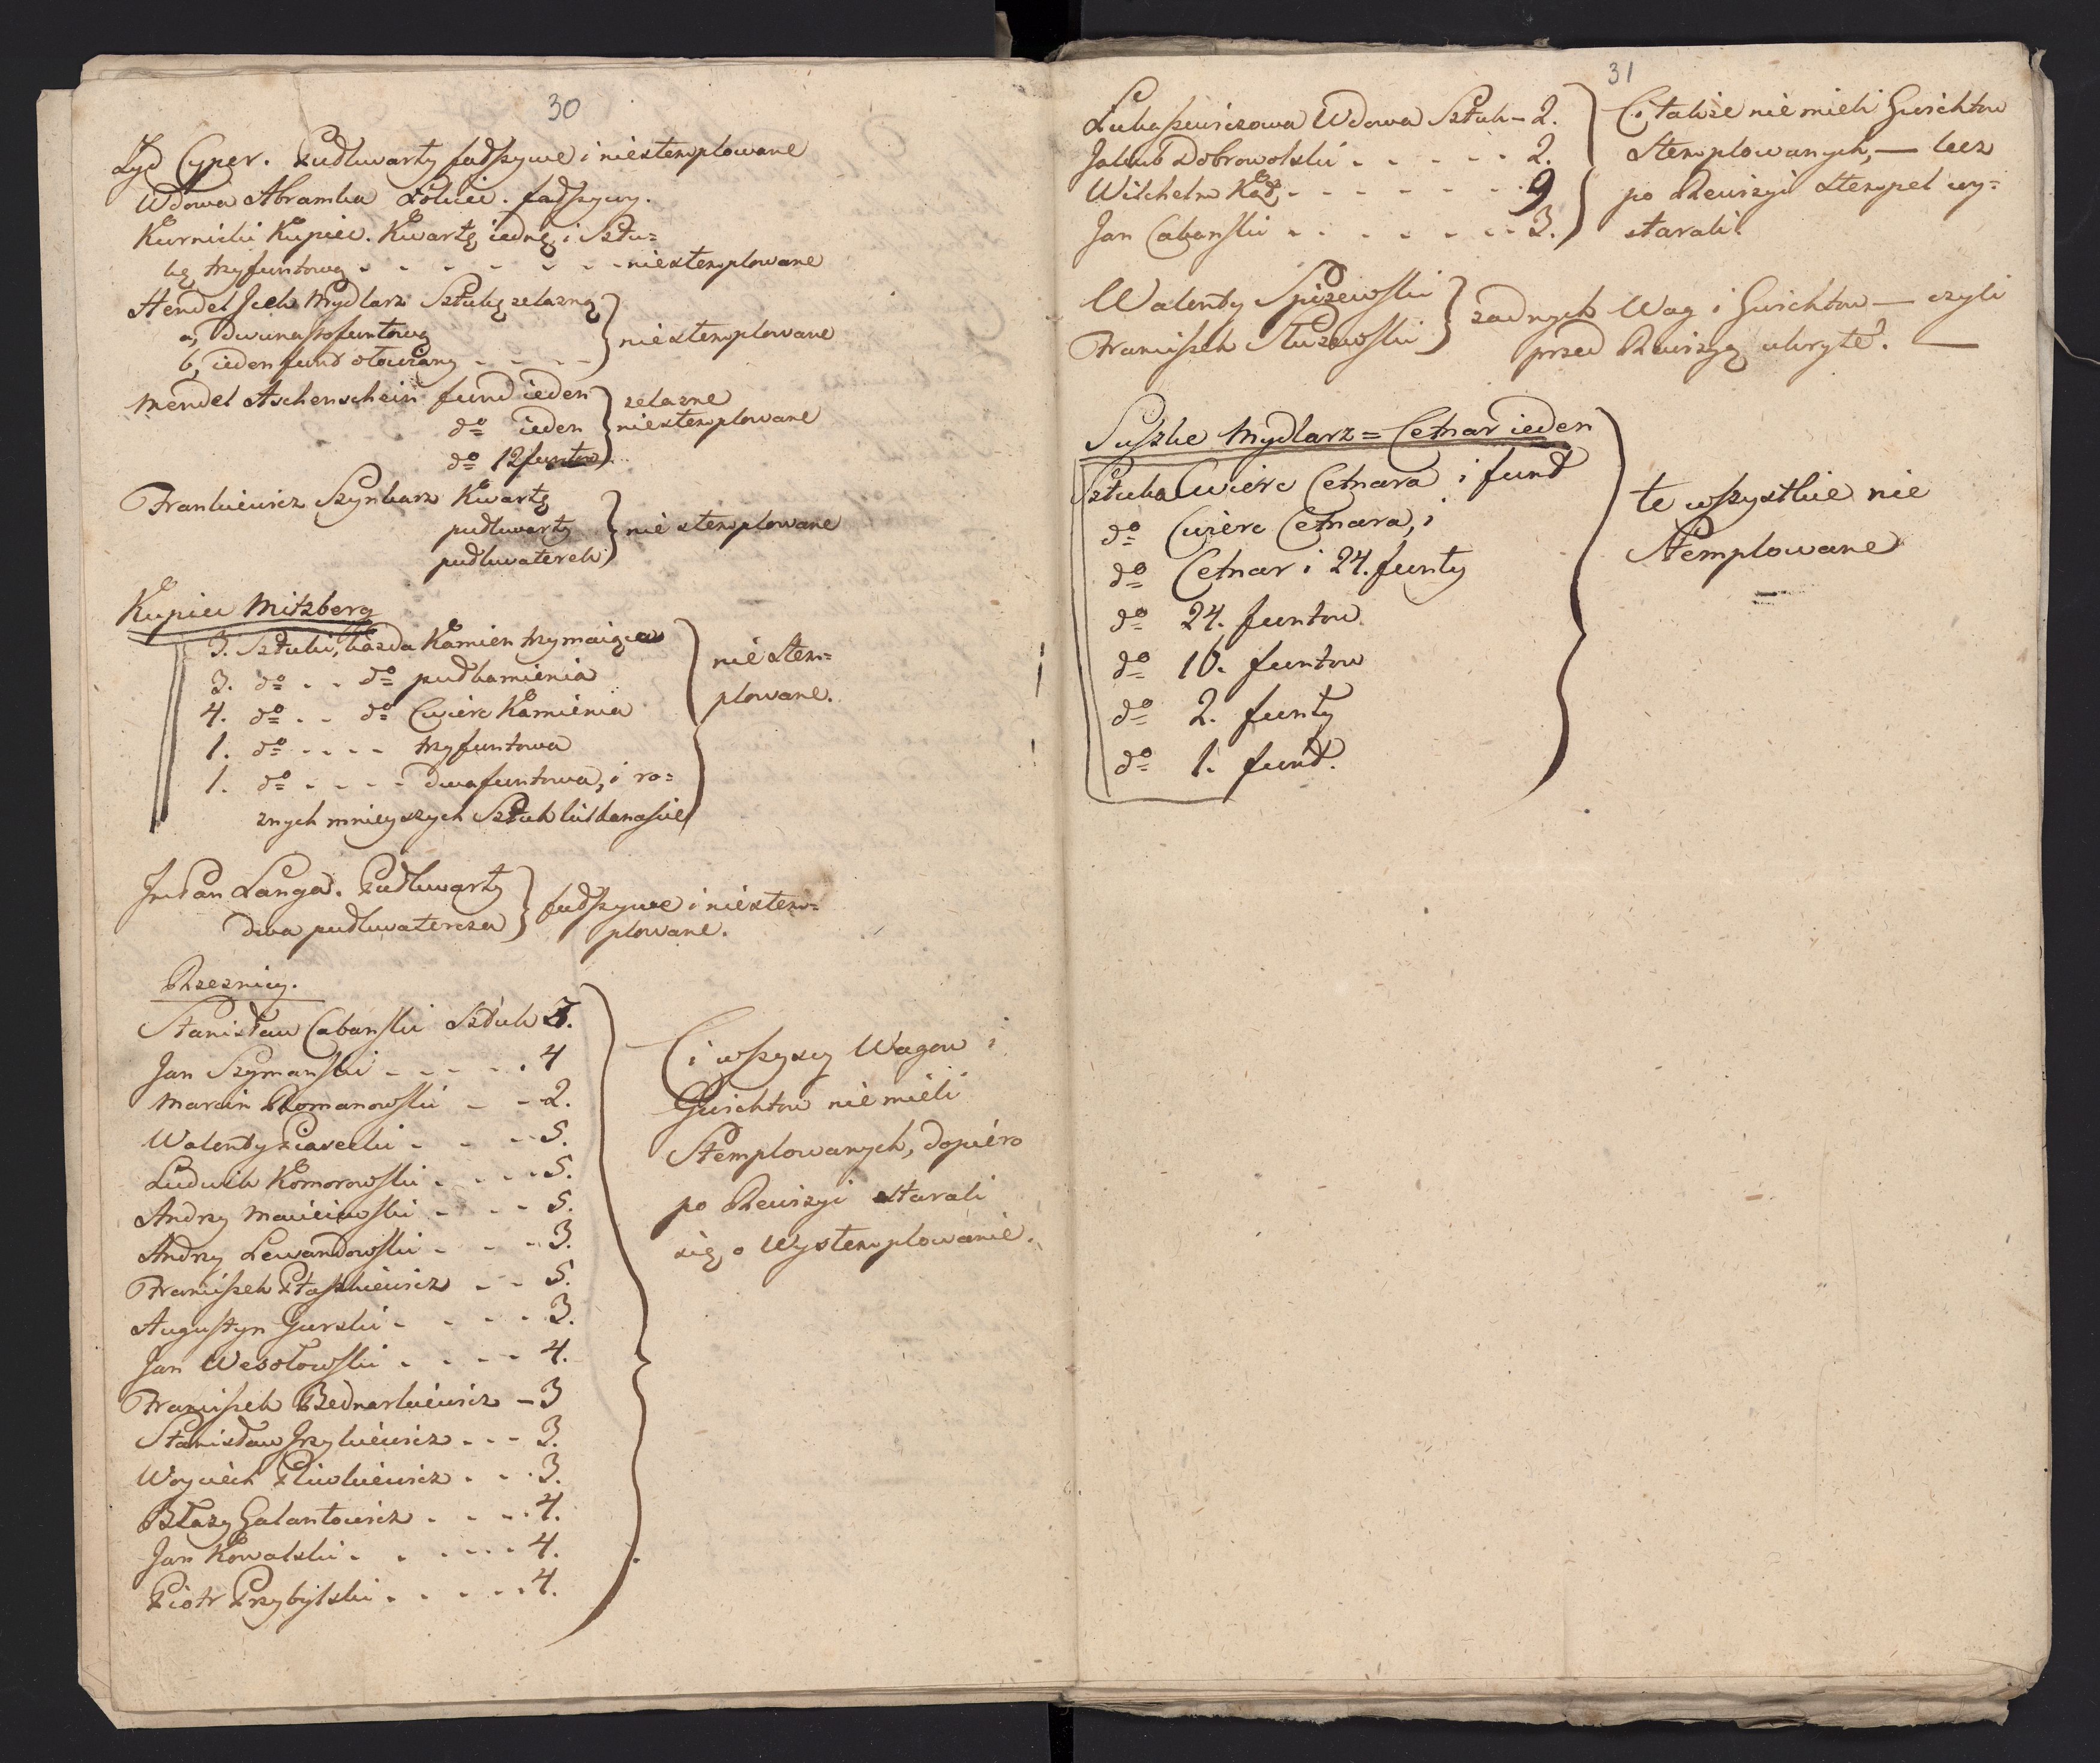 30
Zyd Cyper. Pułkwarty fałszywe i niestemplowane
Wdowa Abramka Łokiec. fałszywy.
Kurnicki Kupiec. Kwartę iednę i Sztu=
kę trzyfuntową - - - - - - niestemplowane
Hendel Jcek Mydlarz Sztukę zelazną
a, dwunastofuntową
b, ieden funt ołowiany - - - -
niestemplowane
Mendel Aschenschein funt ieden
do ieden
do 12 funtow
zelazne
niestemplowane
Frankiewicz Szynkarz Kwartę
pułkwarty
pułkwaterek
niestemplowane
Kupiec Mitzberg
3. Sztuki, kazda Kamien trzymaiąca
3. do - - do pułkamienia
4. do - - do Cwierc Kamienia
1. do - - - - trzyfuntowa
1. do - - - - dwafuntowa, i ro=
znych mnieyszych Sztuk kilkanascie
nie stem=
plowane.
JmPan Langa. Pułkwarty
dwa pułkwatercza
fałszywe i niestem=
plowane.
Rzeznicy.
Stanisław Cabanski Sztuk 3.
Jan Szymanski - - - - - 4
Marcin Romanowski - - 2.
Walenty Piasecki - - - - 5.
Ludwik Komorowski - - - - 5.
Andrzy Macieiewski - - - - 5.
Andrzy Lewandowski - - - - 3.
Franciszek Ptaszkiewicz - - - 5.
Augustyn Gurski - - - - - 3.
Jan Wesołowski - - - - - 4.
Franciszek Bednarkiewicz - 3
Stanisław Jrzykiewicz - - - 3.
Woyciech Pliwkiewicz - - - 3.
Błazy Galantowicz - - - - 4.
Jan Kowalski - - - - - - 4.
Piotr Przybylski - - - - - - 4.
Ci wszyscy Wagow i
Gwichtow nie mieli
Stemplowanych, dopiéro
po Rewizyi starali
się, o Wystemplowanie.
31
Łukaszewiczowa Wdowa Sztuk - 2.
Jakub Dobrowolski - - - - - - 2.
Wilchelm - - - - - - - 9
Jan Cabanski - - - - - - - 3.
Ci, takze nie mieli Gwichtow
Stemplowanych, — lecz
po Rewizyi Stempel wy=
starali.
Walenty Spizewski
Franciszek Kluzewski
zadnych Wag i Gwichtow — czyli
przed Rewizyą ukryte. —
Suszke Mydlarz = Cetnar ieden
Sztuka Cwierc Cetnara i funt
do Cwierc Cetnara, i
do Cetnar i 24. funty
do 24. funtow
do 10. funtow
do 2. funty
do 1. funt.
te wszystkie nie
Stemplowane